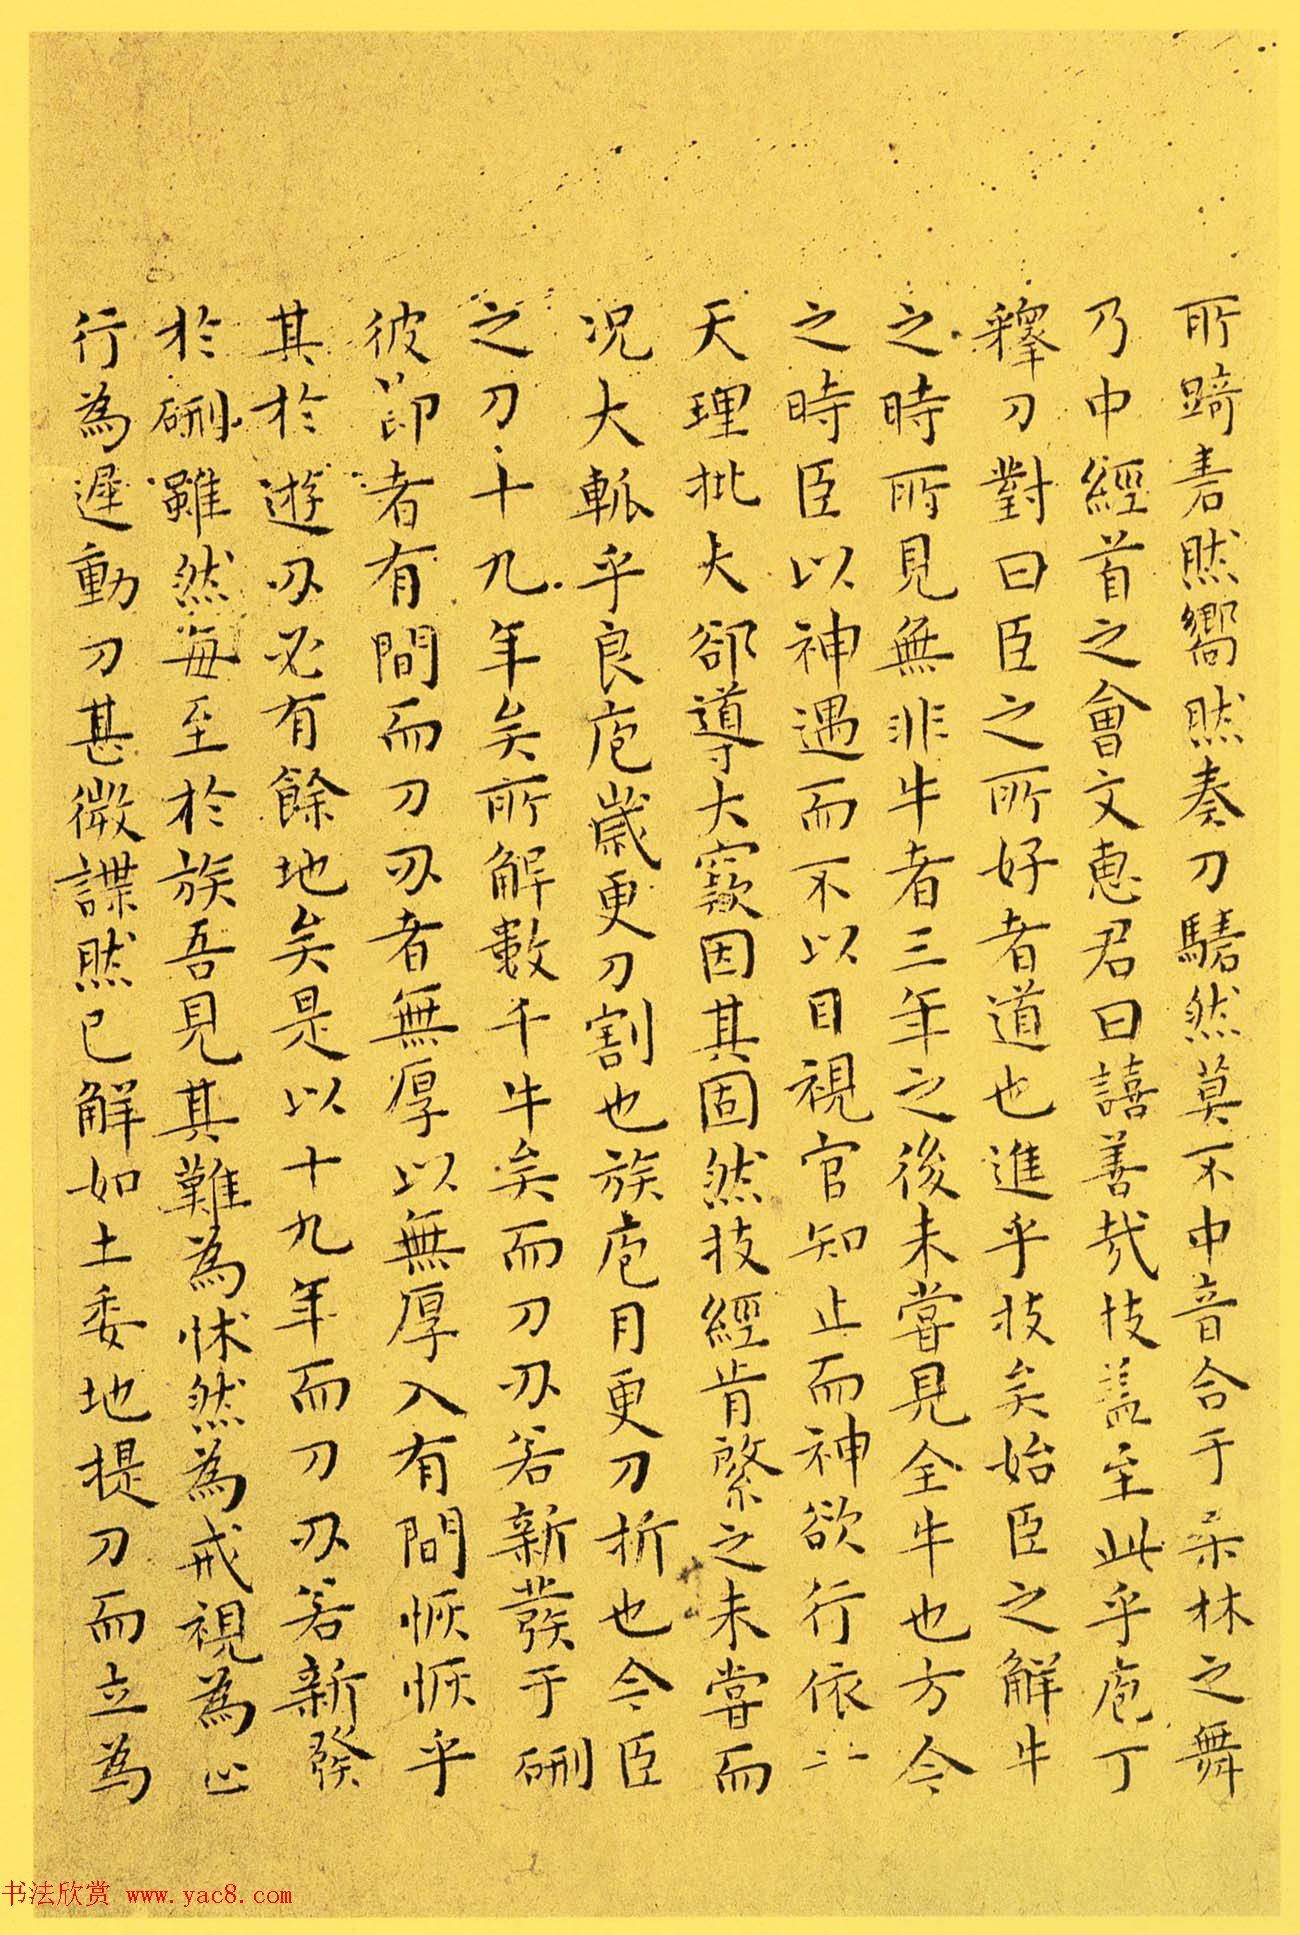 所踦砉然嚮然奏刀騞然莫不中音合于桒林之舞
乃中經首之會文惠君曰譆善哉技盖至此乎庖丁
釋刀對曰臣之所好者道也進乎技矣始臣之解牛
之時所見無非牛者三年之後未嘗見全牛也方今
之時臣以神遇而不以目視官知止而神欲行依
天理批大郤導大窾因其固然技經肯綮之未嘗而
况大軱乎良庖歲更刀割也族庖月更刀折也今臣
之刀十九年矣所解數千牛矣而刀刃若新發于硎
彼節者有間而刀刃者無厚以無厚入有間恢恢乎
其於遊刃必有餘地矣是以十九年而刀刃若新發
於硎雖然每至於族吾見其難為怵然為戒視為止
行為遲動刀甚微謋然已解如土委地提刀而立為
书法欣赏 www.yac8.com